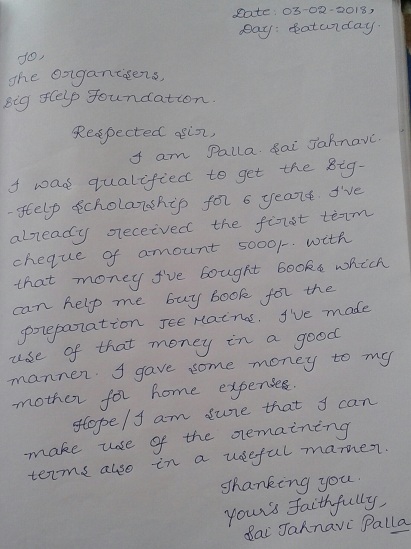 Date: 03-02-2018,
Day: Saturday.
To,
The Organisers,
Big Help Foundation.
Respected Sir,
I am Palla. Sai Jahnavi.
I was qualified to get the Big-
-Help Scholarship for 6 years. I've
already received the first term
cheque of amount 5000/-. with
that money I've bought books which
can help me buy book for the
preparation JEE Mains. I've made
use of that money in a good
manner. I gave some money to my
mother for home expenses.
Hope/I am sure that I can
make use of the remaining
terms also in a useful manner.
Thanking you.
Your's Faithfully,
Sai Jahnavi Palla